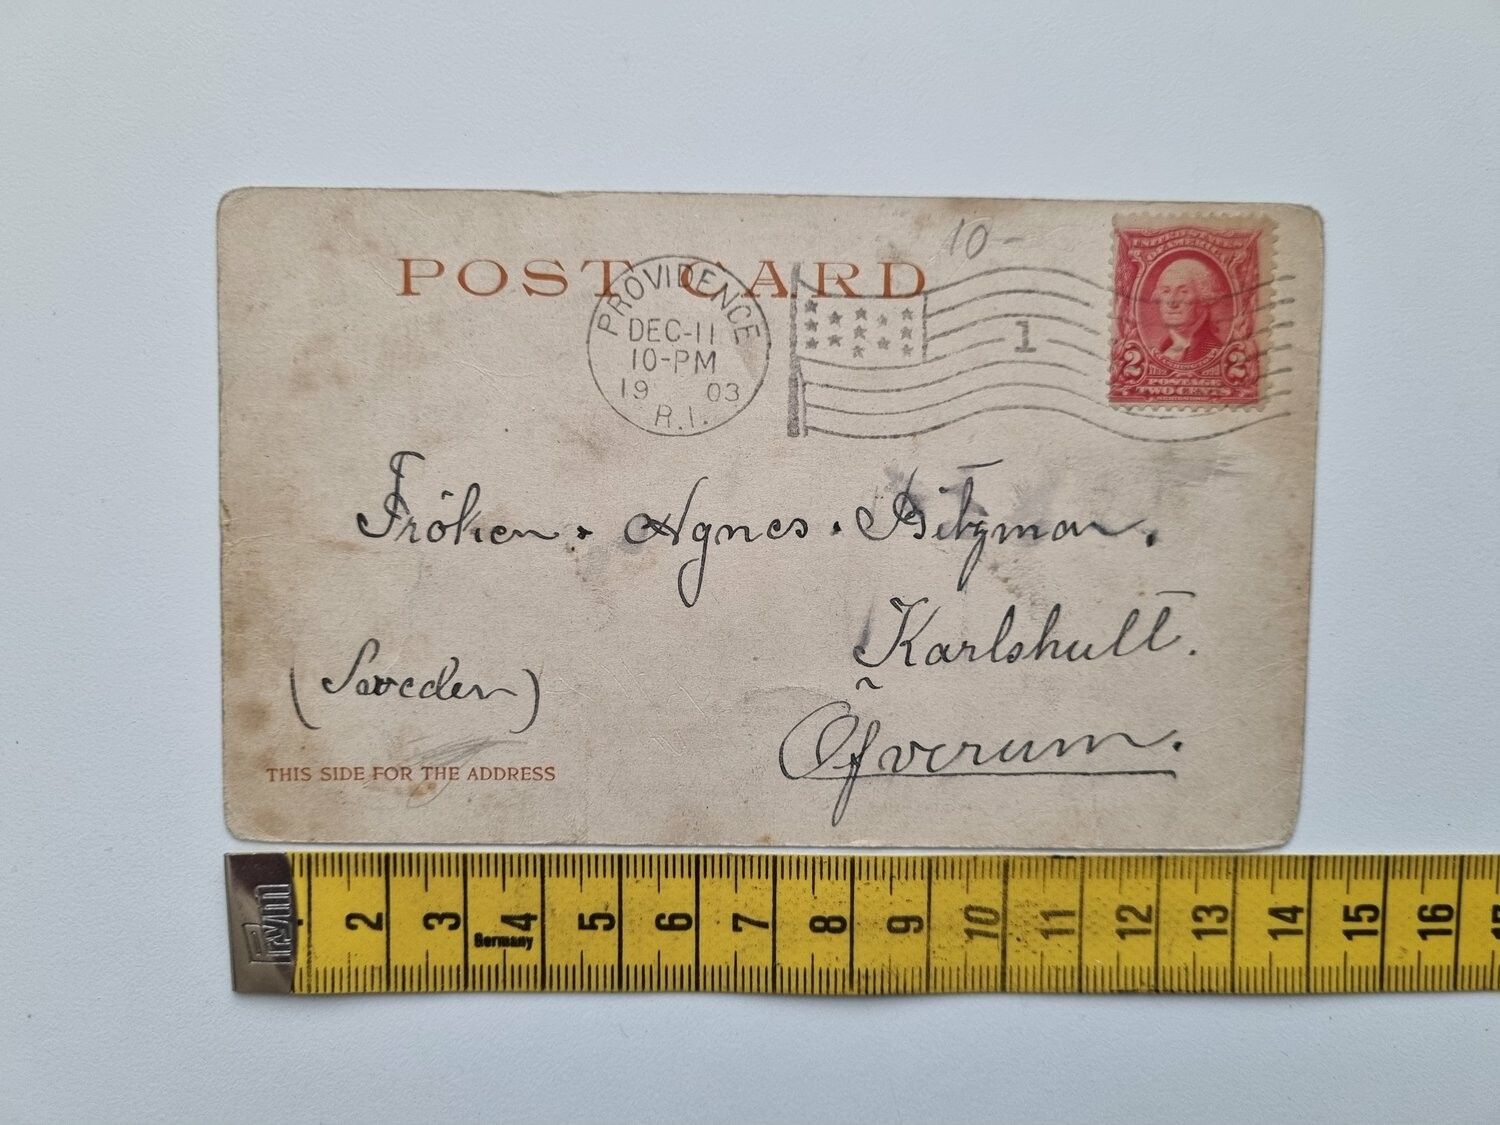 POST CARD
10-
PROVIDENCE
DEC-11
10-PM
19 03
R.I.
1
UNITED STATES
OF AMERICA
2 2
POSTAGE
TWO CENTS
Fröken. Agnes. Bitzman.
Karlshult.
(Sweden)
Öfverum.
THIS SIDE FOR THE ADDRESS
Prym
2 3 4 5 6 7 8 9 10 11 12 13 14 15 16
Germany